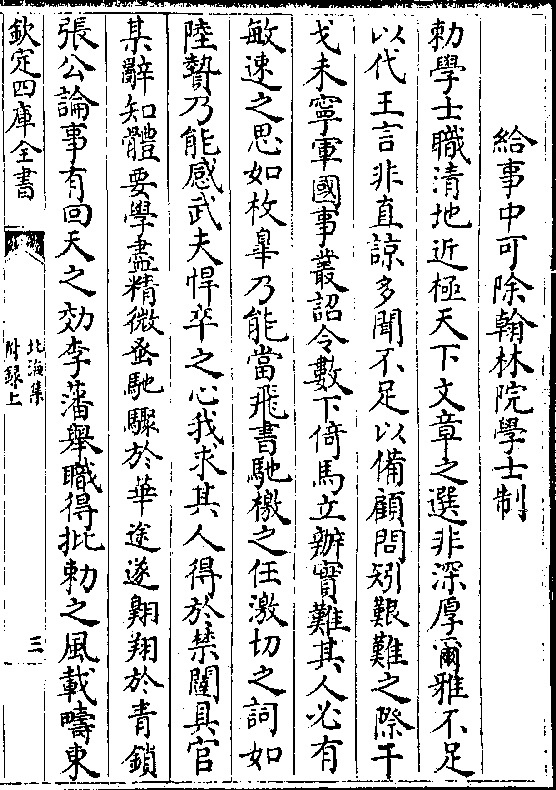 給事中可除翰林院學士制
勅學士職清地近極天下文章之選非深厚爾雅不足
以代王言非直諒多聞不足以備顧問矧艱難之際干
戈未寧軍國事叢詔令數下倚馬立辦實難其人必有
敏速之思如枚臯乃能當飛書馳檄之任激切之詞如
陸贄乃能感武夫悍卒之心我求其人得於禁闥具官
某辭知體要學盡精微蚤馳驟於華途遂翺翔於青鎖
張公論事有回天之効李藩舉職得批勅之風載疇東
欽定四庫全書
北海集
附録上
三